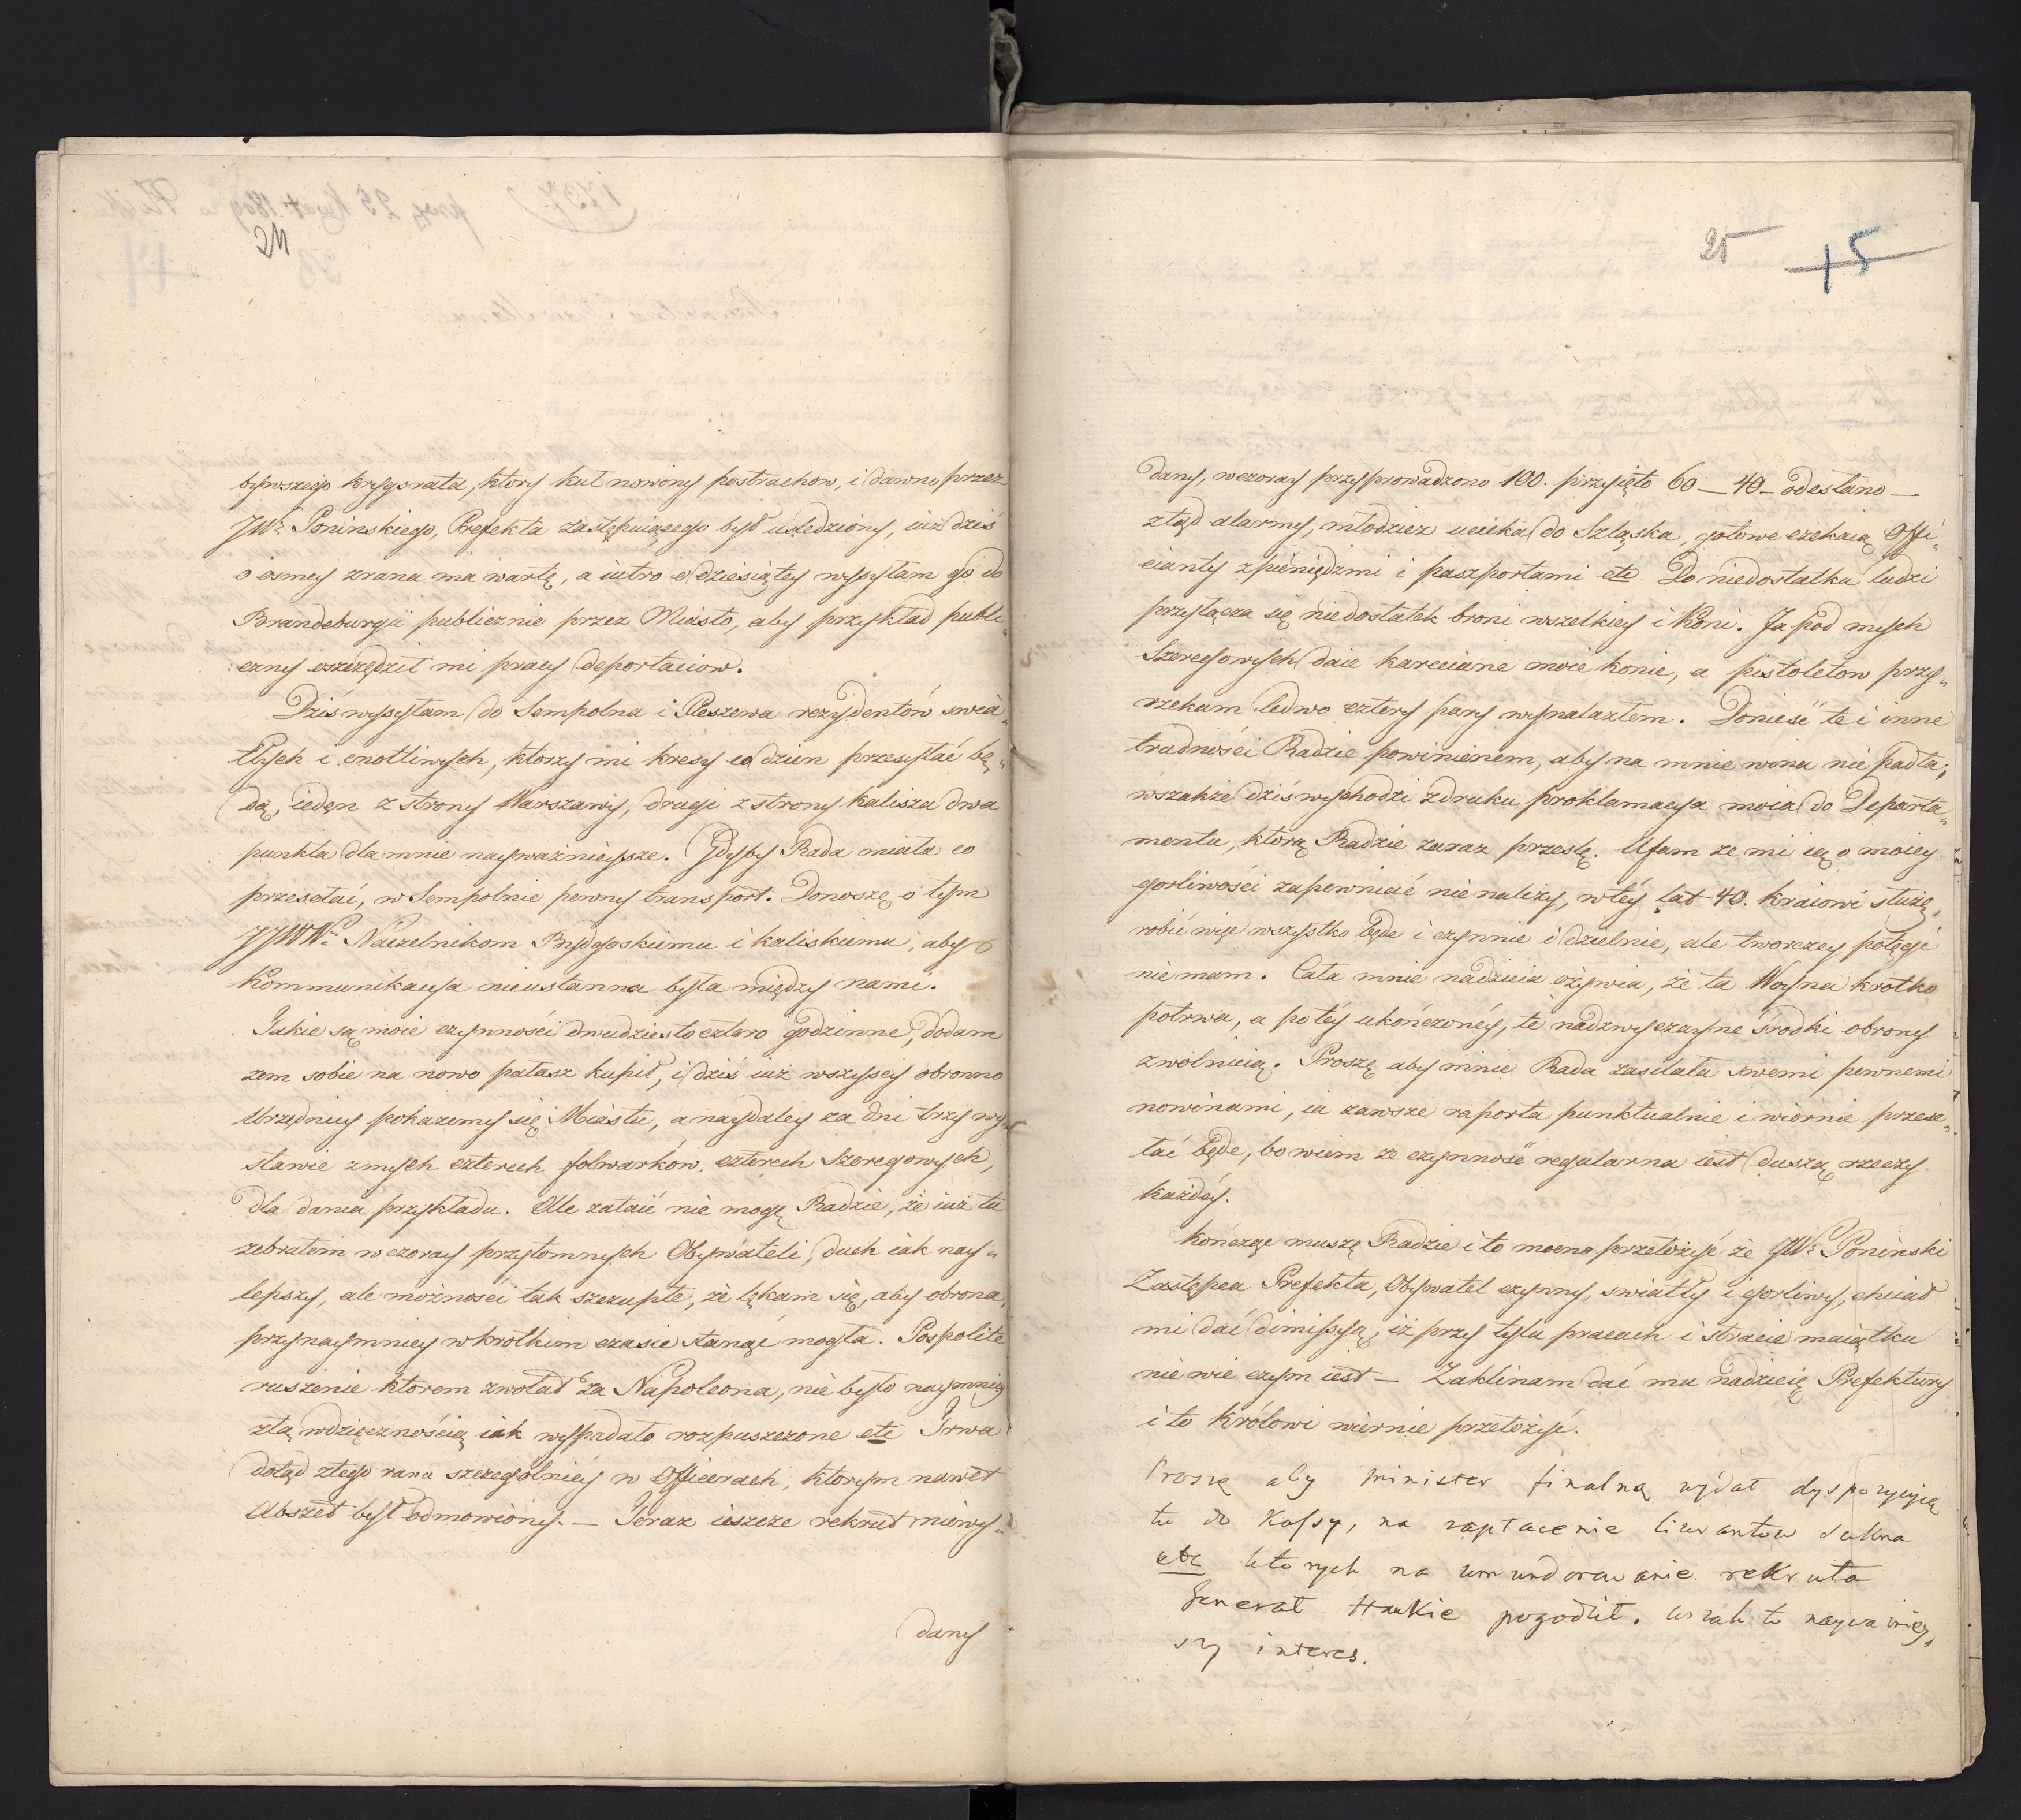 24
bywszego krygsrata, ktory kut nowiny postrachow, i dawno przez
JWo Poninskiego, Prefekta zastępuiącego był uśledziony, iuż dziś
o osmey zrana ma wartę, a iutro o dziesiątey wysyłam go do
Brandeburgii publicznie przez Miasto, aby przykład publi„
czny oszczędził mi pracy deportaciow.
Dziś wysyłam do Sempolna i Pleszewa rezydentów swia„
tłych i cnotliwych, ktorzy mi kresy co dzien przesyłać bę„
dą, ieden z strony Warszawy, drugi z strony Kalisza dwa
punkta dla mnie nayważnieysze. Gdyby Rada miała co
przesełać, w Sempolnie pewny transport. Donoszę o tym
JJWWo Naczelnikom Bydgoskiemu i Kaliskiemu, aby
Kommunikacya nieustanna była między nami.
Takie są moie czynności dwudziesto cztero godzinne, dodam
zem sobie na nowo pałasz kupił, i dziś iuż wszyscy obronno
Urzędnicy pokazemy się Miastu, a naydaley za dni trzy wy„
stawie zmych czterech folwarków, czterech Szeregowych,
dla dania przykładu. Ale zataić nie mogę Radzie, że iuż tu
zebrałem wczoray przytomnych Obywateli, duch iak nay„
lepszy, ale możności tak szczupłe, że lękam się, aby obrona,
przynaymniey w krotkim czasie stanąć mogła. Pospolite
ruszenie ktorem zwołał za Napoleona, nie było naymniey
ztą wdzięcznością iak wypadało rozpuszczone etc Trwa
dotąd ztego rana szczegolniey w Officerach, ktorym nawet
Abszed był odmowiony. — Teraz ieszcze rekrut niewy„
dany
25 15
dany, wczoray przyprowadzono 100. przyięto 60 — 40 — odesłano —
ztąd alarmy, młodziez ucieka do Szląska, gotowe czekaią Offi„
cianty z pieniędzmi i paszportami etc Do niedostatku ludzi
przyłącza się niedostatek broni wszelkiey i Koni. Ja pod mych
Szeregowych daie karciane moie konie, a pistoletow przy„
rzekam ledwo cztery pary wynalazłem. Donieść te i inne
trudności Radzie powinienem, aby na mnie wina nie padła;
wszakże dziś wychodzi z druku proklamacya moia do Departa„
mentu, ktorą Radzie zaraz prześlę. Ufam ze mi ią o moiey
gorliwości zapewniać nie należy, wtéy lat 40. kraiowi służę,
robić więc wszystko będe i czynnie i dzielnie, ale tworczey potęgi
nie mam. Cała mnie nadzieia ożywia, że ta Woyna krotko
potrwa, a po tey ukończoney, te nadzwyczayne środki obrony
zwolnieią. Proszę aby mnie Rada zasilała swemi pewnemi
nowinami, ia zawsze raporta punktualnie i wiernie przese„
łać będe, bo wiem ze czynność regularna iest duszą rzeczy
każdey.
Kończąc muszę Radzie i to mocno przełożyć że JWo Poninski
Zastępca Prefekta, Obywatel czynny, swiatły i gorliwy, chciał
mi dać dimissyą, iż przy tylu pracach i stracie maiątku
nie wie czym iest — Zaklinam dać mu nadzieię Prefektury
i to Królowi wiernie przełożyć.
Proszę aby minister finalną wydał dyspozycyią
tu do Kassy, na zapłacenie liwrantow sukna
etc ktorych na umundorowanie rekruta
Generał Haukie pogodził. wszak to naywaźniey„
szy interes.